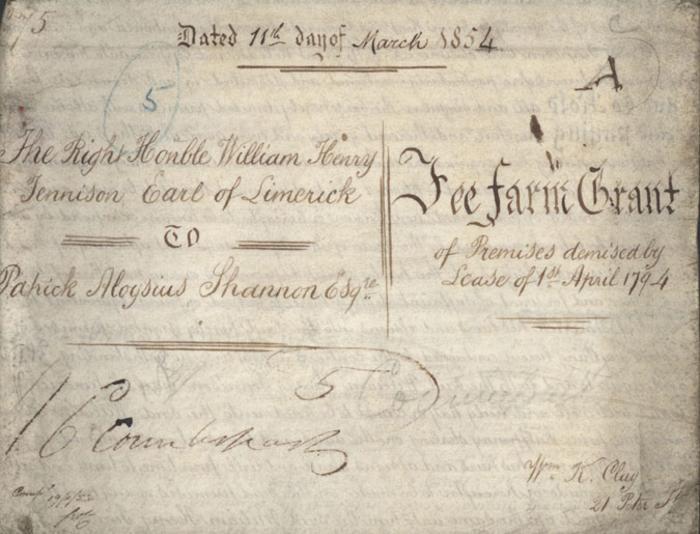 5
Dated 11th day of March 1854
A
5
The Right Honble William Henry
Tennison Earl of Limerick
TO
Patrick Aloysius Shannon Esqre.
Fee farm Grant
of Premises demised by
Lease of 1st April 1794
5
Counterpart
Wm. K. Clay
21 Peter St